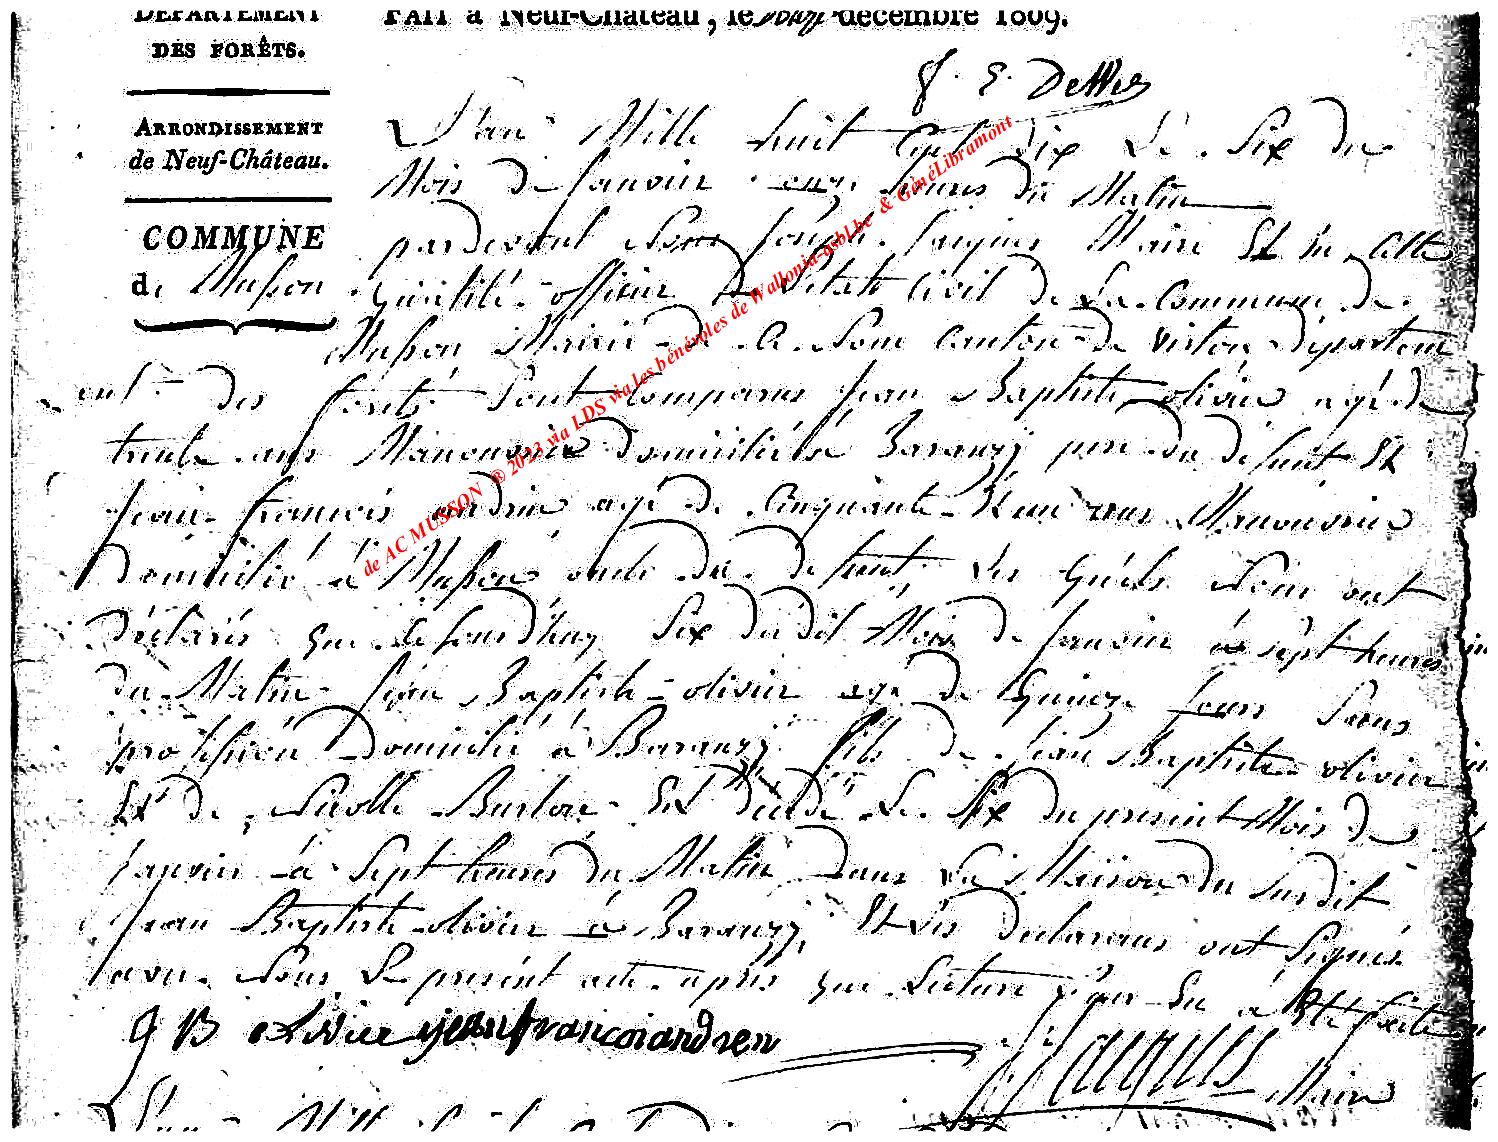 DÉPARTEMENT
DES FORÊTS.
FAIT à Neuf-Château, le décembre 1809.
ARRONDISSEMENT
de Neuf-Château.
COMMUNE
de Musson
L'an Mille huit Cent dix Le Six du
Mois de Janvier onze heures du Matin
pardevant Nous Joseph Jacques Maire Et En Cette
Qualité officier de L'état Civil de La Commune de
Musson Mairie de Canton de Virton départem
ent des forêts Sont Comparus Jean Baptiste olivier agé de
trente ans Manouvrié domicilié à Baranzy pere du défunt Et
Jean francois andrin agé de Cinquante Et un ans Manouvrié
Domicilié à Musson oncle du défunt, Les quels Nous ont
déclarés que Le Jourd'huy Six dudit Mois de Janvier à Sept heures
du Matin Jean Baptiste olivier agé de Quinze Jours Sans
profession Domicilié à Baranzy fils de Jean Baptiste olivier
Et de Burton Est decedé Le Six du present Mois de
Janvier à Sept heures du Matin dans La Maison du Susdit
Jean Baptiste olivier à Baranzy, Et Les declarans ont Signés
avec Nous Le présent acte après que Lecture Leur En à Eté faite
J B olivier jean francoi andren
J. J. Jacques Maire
L'an Mille
de AC MUSSON ® 2023 via LDS via les bénévoles de Wallonia-asbl.be & GénéLibramont